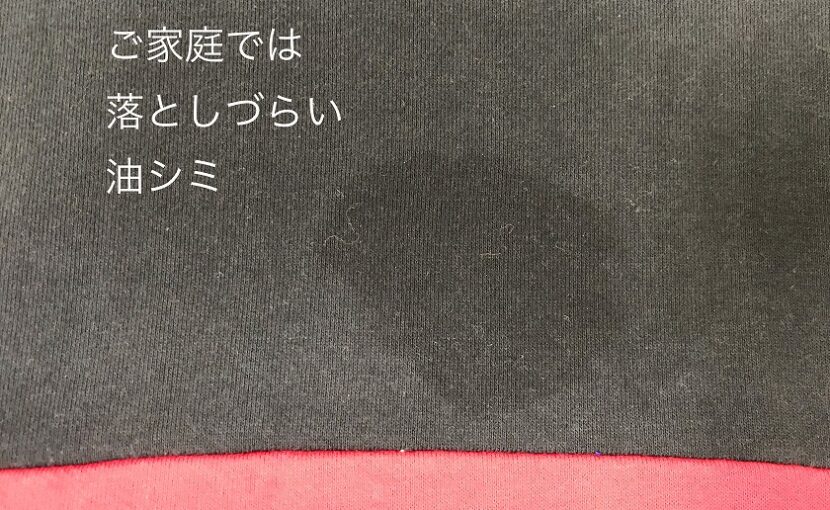 ご家庭では
落としづらい
油シミ